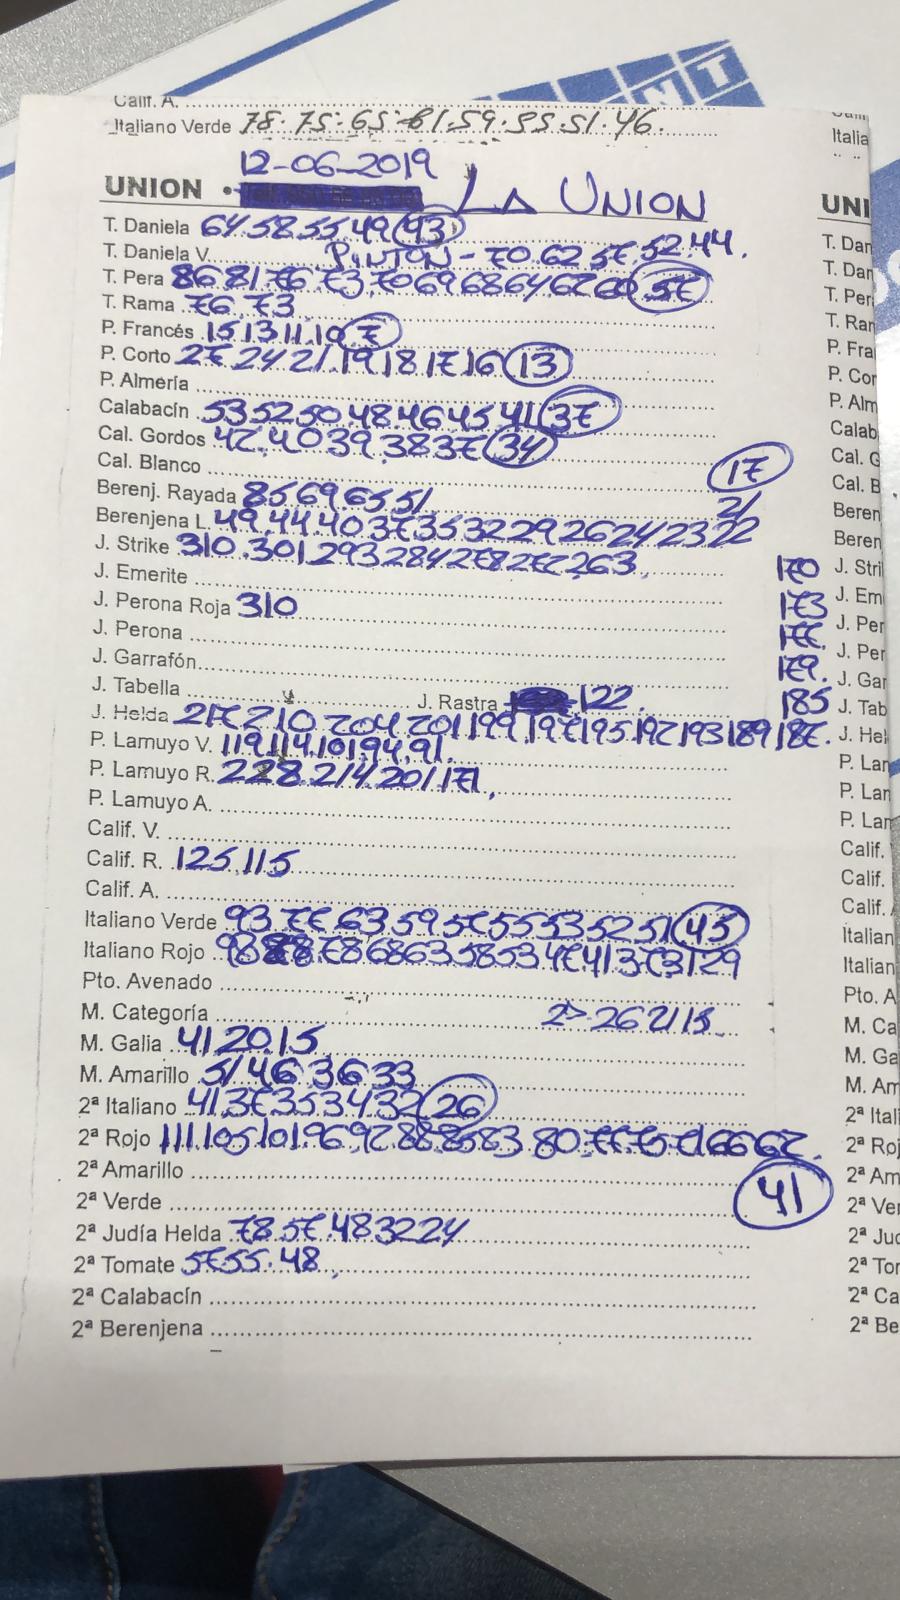 Calif. A.
Italiano Verde 78.75.65.61.59.55.51.46.
12-06-2019
UNION • LA UNION
T. Daniela 64.58.55.49 43
T. Daniela V. PINTON - 70.62.57.52.44.
T. Pera 86 81 76 73 70 69 68 64 62 60 57
T. Rama 76 73
P. Francés 15 13 11 10 7
P. Corto 27 24 21 19 18 17 16 13
P. Almería
Calabacín 53 52 50 48 46 45 41 37
Cal. Gordos 42.40 39.38 37 34
Cal. Blanco 17
Berenj. Rayada 85 69.65 51 21
Berenjena L. 49.44.40 37 35 32 29 26 24 23 22
J. Strike 310.301 293 284 278 272 263
J. Emerite 170
J. Perona Roja 310 173
J. Perona 177.
J. Garrafón 179.
J. Tabella J. Rastra 122. 185
J. Helda 217 210 204 201 199 197 195 192 193 189 187.
P. Lamuyo V. 119 114.101 94.91.
P. Lamuyo R. 228 214 201 171
P. Lamuyo A.
Calif. V.
Calif. R. 125.115
Calif. A.
Italiano Verde 93 77 63 59 57 55 53 52 51 45
Italiano Rojo 98 78 68 63 58 53 47 41 37 31 29
Pto. Avenado
M. Categoría 26 21 15
M. Galia 41 20 15
M. Amarillo 51 46 36 33
2ª Italiano 41.37 35 34 32 26
2ª Rojo 111 105 101 96 92 88 85 83 80 77 75 71 66 62.
2ª Amarillo
2ª Verde 41
2ª Judía Helda 78.57.48 32 24
2ª Tomate 57 55.48
2ª Calabacín
2ª Berenjena